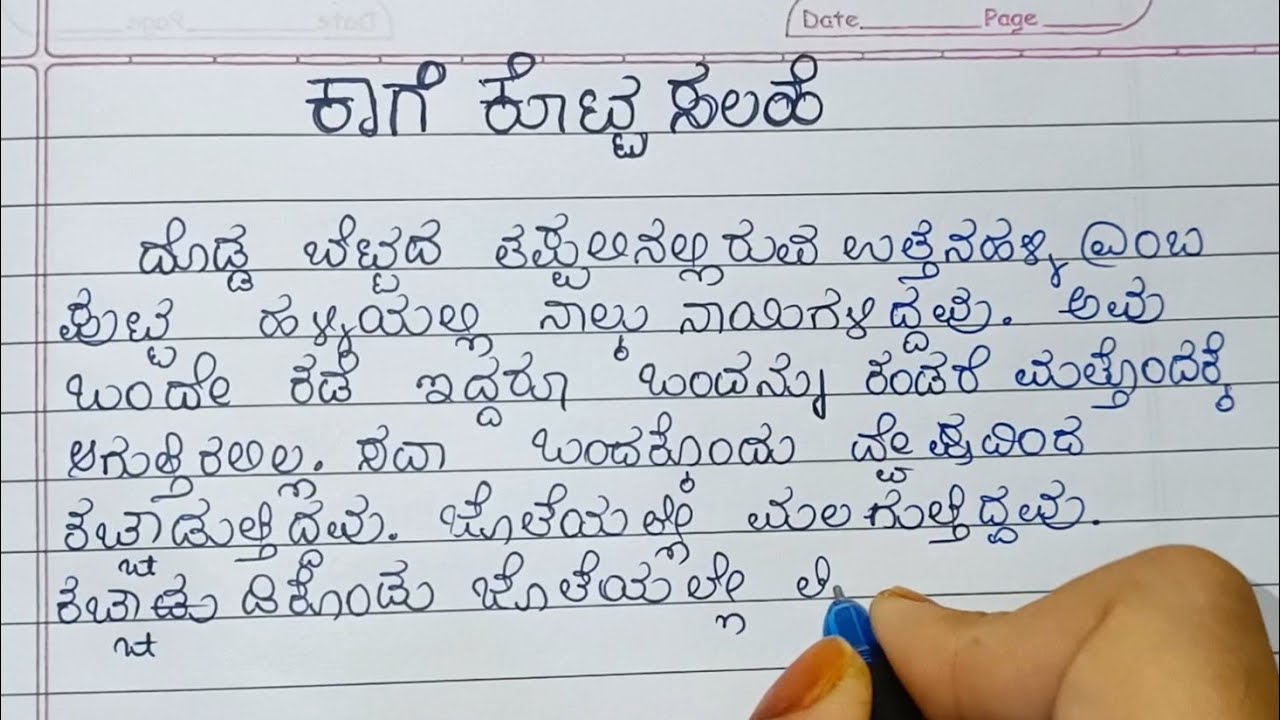 Date Page
ಕಾಗೆ ಕೊಟ್ಟ ಸಲಹೆ
ದೊಡ್ಡ ಬೆಟ್ಟದ ತಪ್ಪಲಿನಲ್ಲಿರುವ ಉತ್ತನಹಳ್ಳಿ ಎಂಬ
ಪುಟ್ಟ ಹಳ್ಳಿಯಲ್ಲಿ ನಾಲ್ಕು ನಾಯಿಗಳಿದ್ದವು. ಅವು
ಒಂದೇ ಕಡೆ ಇದ್ದರೂ ಒಂದನ್ನು ಕಂಡರೆ ಮತ್ತೊಂದಕ್ಕೆ
ಆಗುತ್ತಿರಲಿಲ್ಲ. ಸದಾ ಒಂದಕ್ಕೊಂದು ದ್ವೇಷದಿಂದ
ಕಚ್ಚಾಡುತ್ತಿದ್ದವು. ಜೊತೆಯಲ್ಲೇ ಮಲಗುತ್ತಿದ್ದವು.
ಕಚ್ಚಾಡಿಕೊಂಡು ಜೊತೆಯಲ್ಲೇ